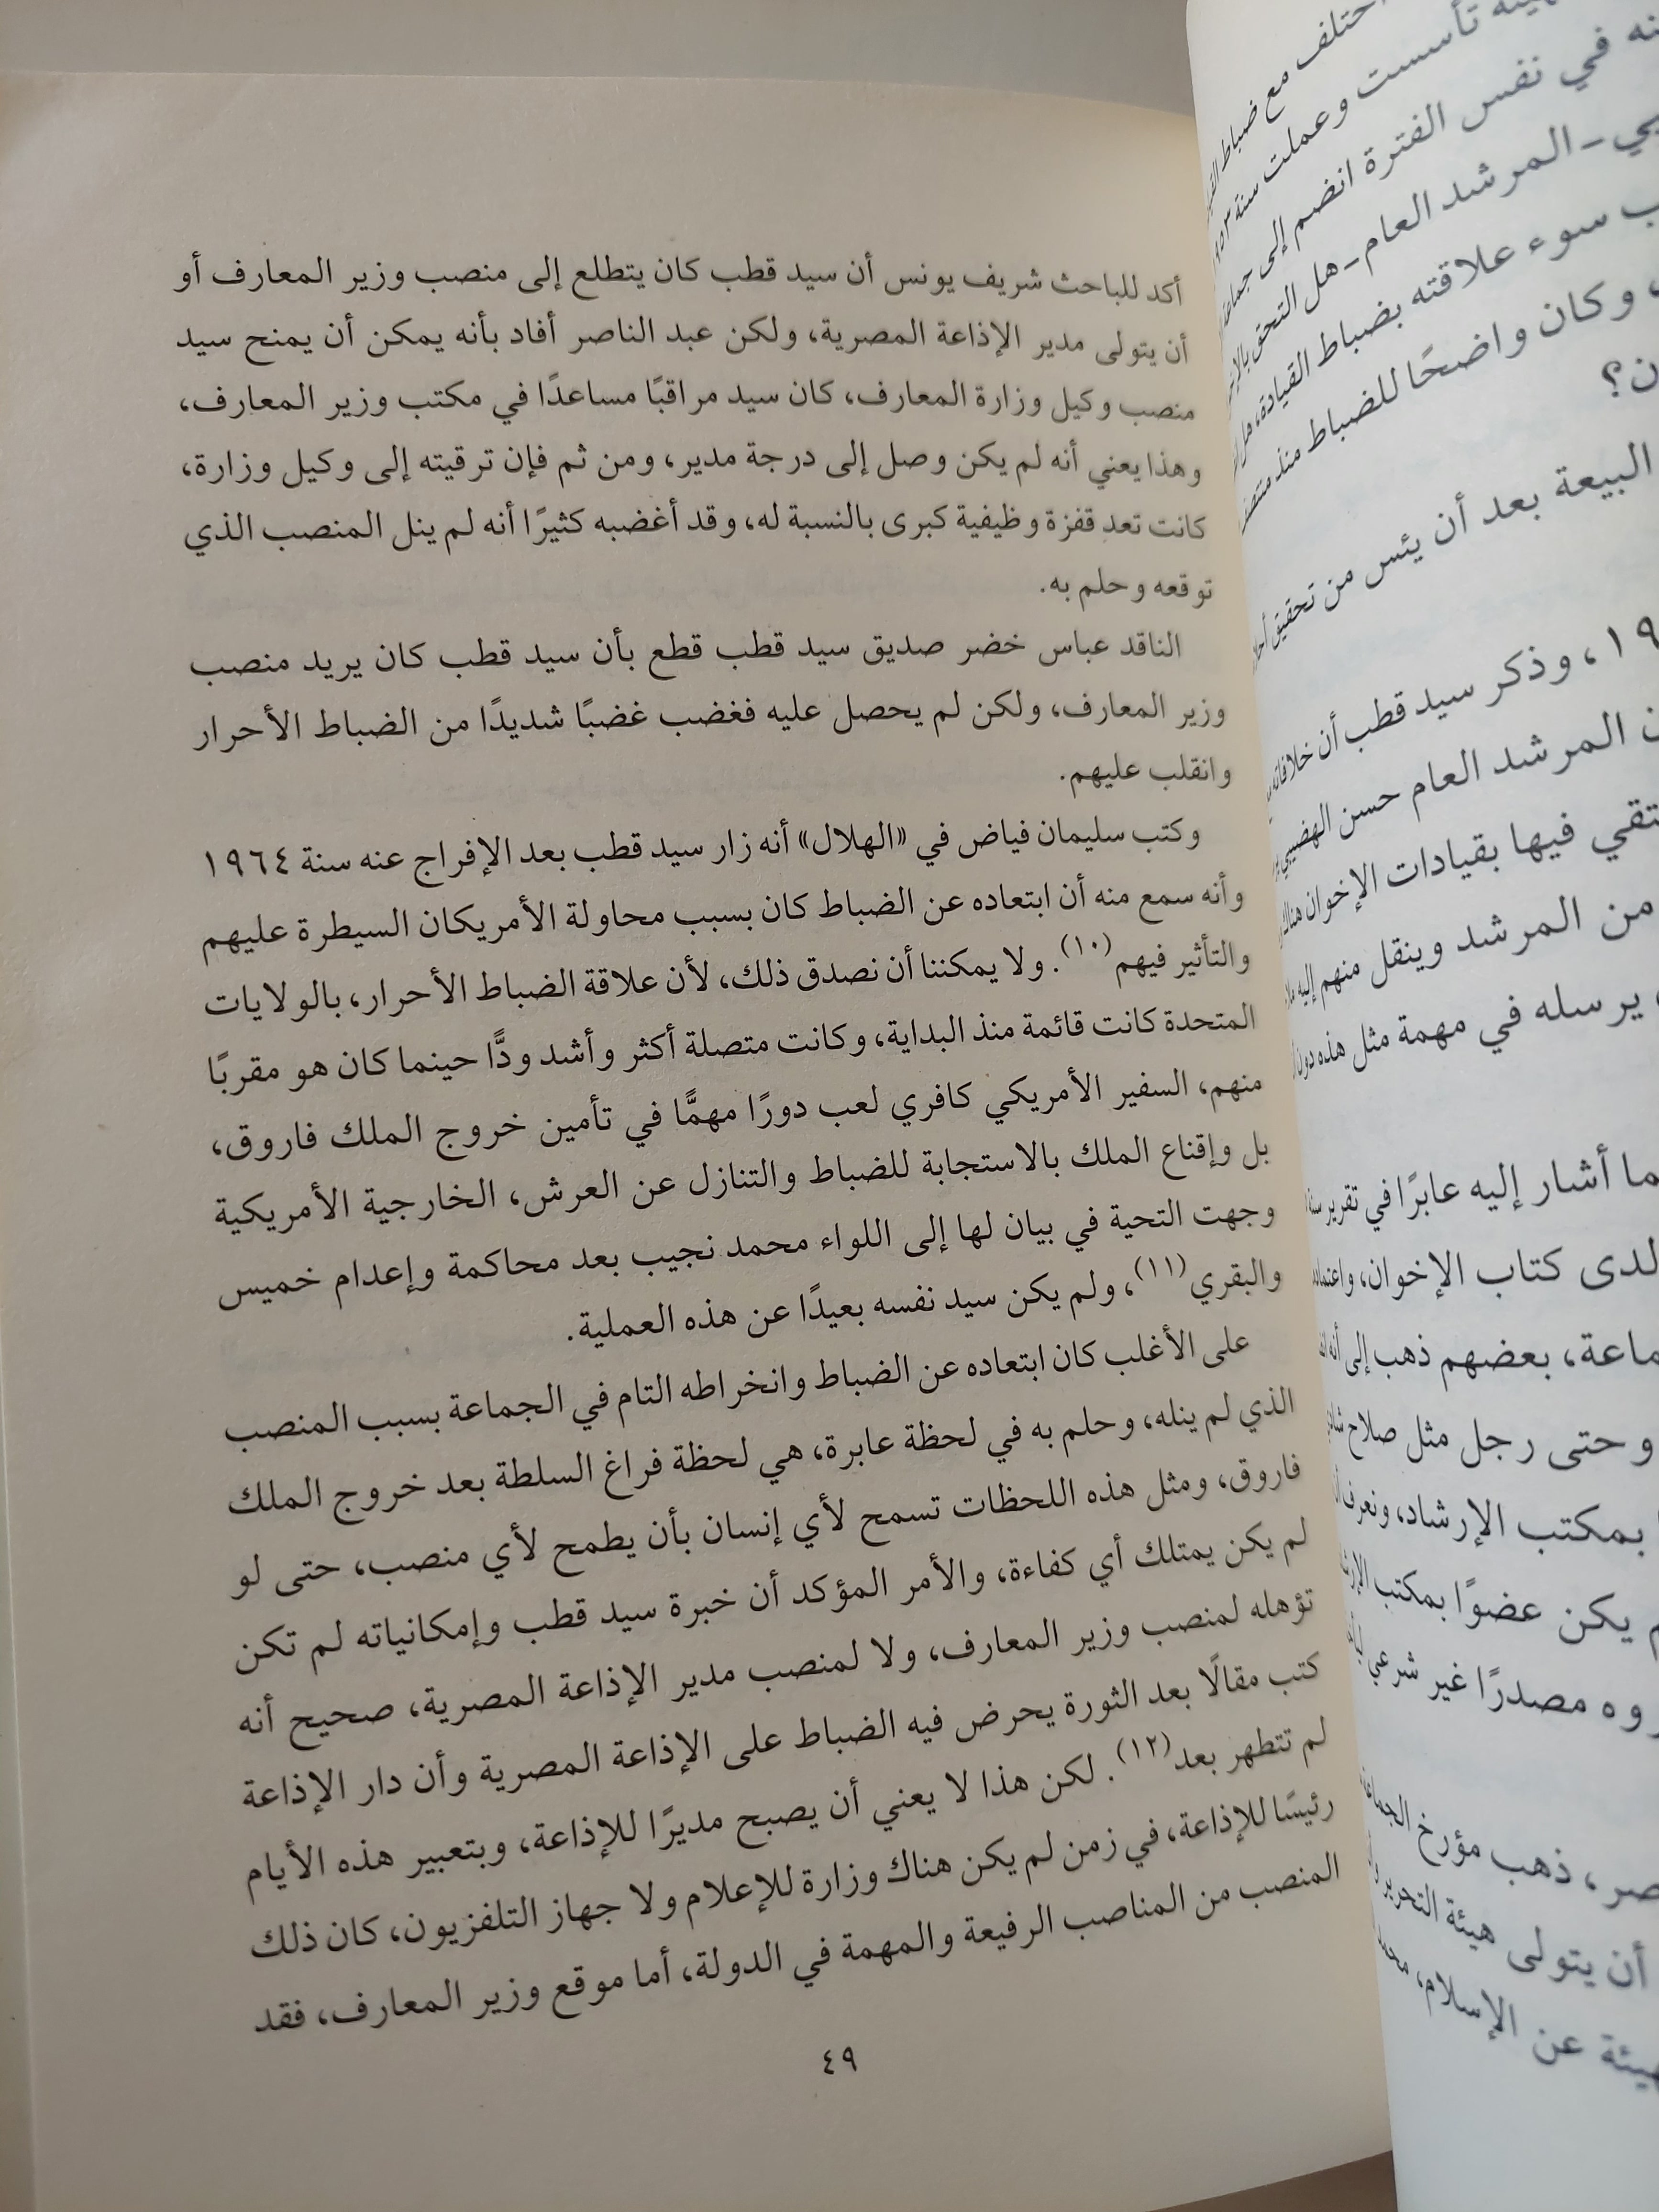 أكد للباحث شريف يونس أن سيد قطب كان يتطلع إلى منصب وزير المعارف أو
أن يتولى مدير الإذاعة المصرية، ولكن عبد الناصر أفاد بأنه يمكن أن يمنح سيد
منصب وكيل وزارة المعارف، كان سيد مراقبًا مساعدًا في مكتب وزير المعارف،
وهذا يعني أنه لم يكن وصل إلى درجة مدير، ومن ثم فإن ترقيته إلى وكيل وزارة،
كانت تعد قفزة وظيفية كبرى بالنسبة له، وقد أغضبه كثيرًا أنه لم ينل المنصب الذي
توقعه وحلم به.
الناقد عباس خضر صديق سيد قطب قطع بأن سيد قطب كان يريد منصب
وزير المعارف، ولكن لم يحصل عليه فغضب غضبًا شديدًا من الضباط الأحرار
وانقلب عليهم.
وكتب سليمان فياض في «الهلال» أنه زار سيد قطب بعد الإفراج عنه سنة ١٩٦٤
وأنه سمع منه أن ابتعاده عن الضباط كان بسبب محاولة الأمريكان السيطرة عليهم
والتأثير فيهم(١٠). ولا يمكننا أن نصدق ذلك، لأن علاقة الضباط الأحرار، بالولايات
المتحدة كانت قائمة منذ البداية، وكانت متصلة أكثر وأشد ودًّا حينما كان هو مقربًا
منهم، السفير الأمريكي كافري لعب دورًا مهمًّا في تأمين خروج الملك فاروق،
بل وإقناع الملك بالاستجابة للضباط والتنازل عن العرش، الخارجية الأمريكية
وجهت التحية في بيان لها إلى اللواء محمد نجيب بعد محاكمة وإعدام خميس
والبقري(١١)، ولم يكن سيد نفسه بعيدًا عن هذه العملية.
على الأغلب كان ابتعاده عن الضباط وانخراطه التام في الجماعة بسبب المنصب
الذي لم ينله، وحلم به في لحظة عابرة، هي لحظة فراغ السلطة بعد خروج الملك
فاروق، ومثل هذه اللحظات تسمح لأي إنسان بأن يطمح لأي منصب، حتى لو
لم يكن يمتلك أي كفاءة، والأمر المؤكد أن خبرة سيد قطب وإمكانياته لم تكن
تؤهله لمنصب وزير المعارف، ولا لمنصب مدير الإذاعة المصرية، صحيح أنه
كتب مقالًا بعد الثورة يحرض فيه الضباط على الإذاعة المصرية وأن دار الإذاعة
لم تتطهر بعد(١٢). لكن هذا لا يعني أن يصبح مديرًا للإذاعة، وبتعبير هذه الأيام
رئيسًا للإذاعة، في زمن لم يكن هناك وزارة للإعلام ولا جهاز التلفزيون، كان ذلك
المنصب من المناصب الرفيعة والمهمة في الدولة، أما موقع وزير المعارف، فقد
٤٩
اختلف مع ضباط
تأسست وعملت سنة
في نفس الفترة انضم إلى
المرشد العام - هل التحق
سوء علاقته بضباط القيادة،
وكان واضحًا للضباط منذ
البيعة بعد أن يئس من تحقيق
، وذكر سيد قطب أن
المرشد العام حسن الهضيبي
فيها بقيادات الإخوان
من المرشد وينقل منهم إليه
يرسله في مهمة مثل هذه دون
أشار إليه عابرًا في تقرير
لدى كتاب الإخوان،
، بعضهم ذهب إلى
وحتى رجل مثل صلاح
بمكتب الإرشاد، ونعرف
يكن عضوًا بمكتب
مصدرًا غير شرعي
، ذهب مؤرخ
أن يتولى هيئة التحرير
عن الإسلام،